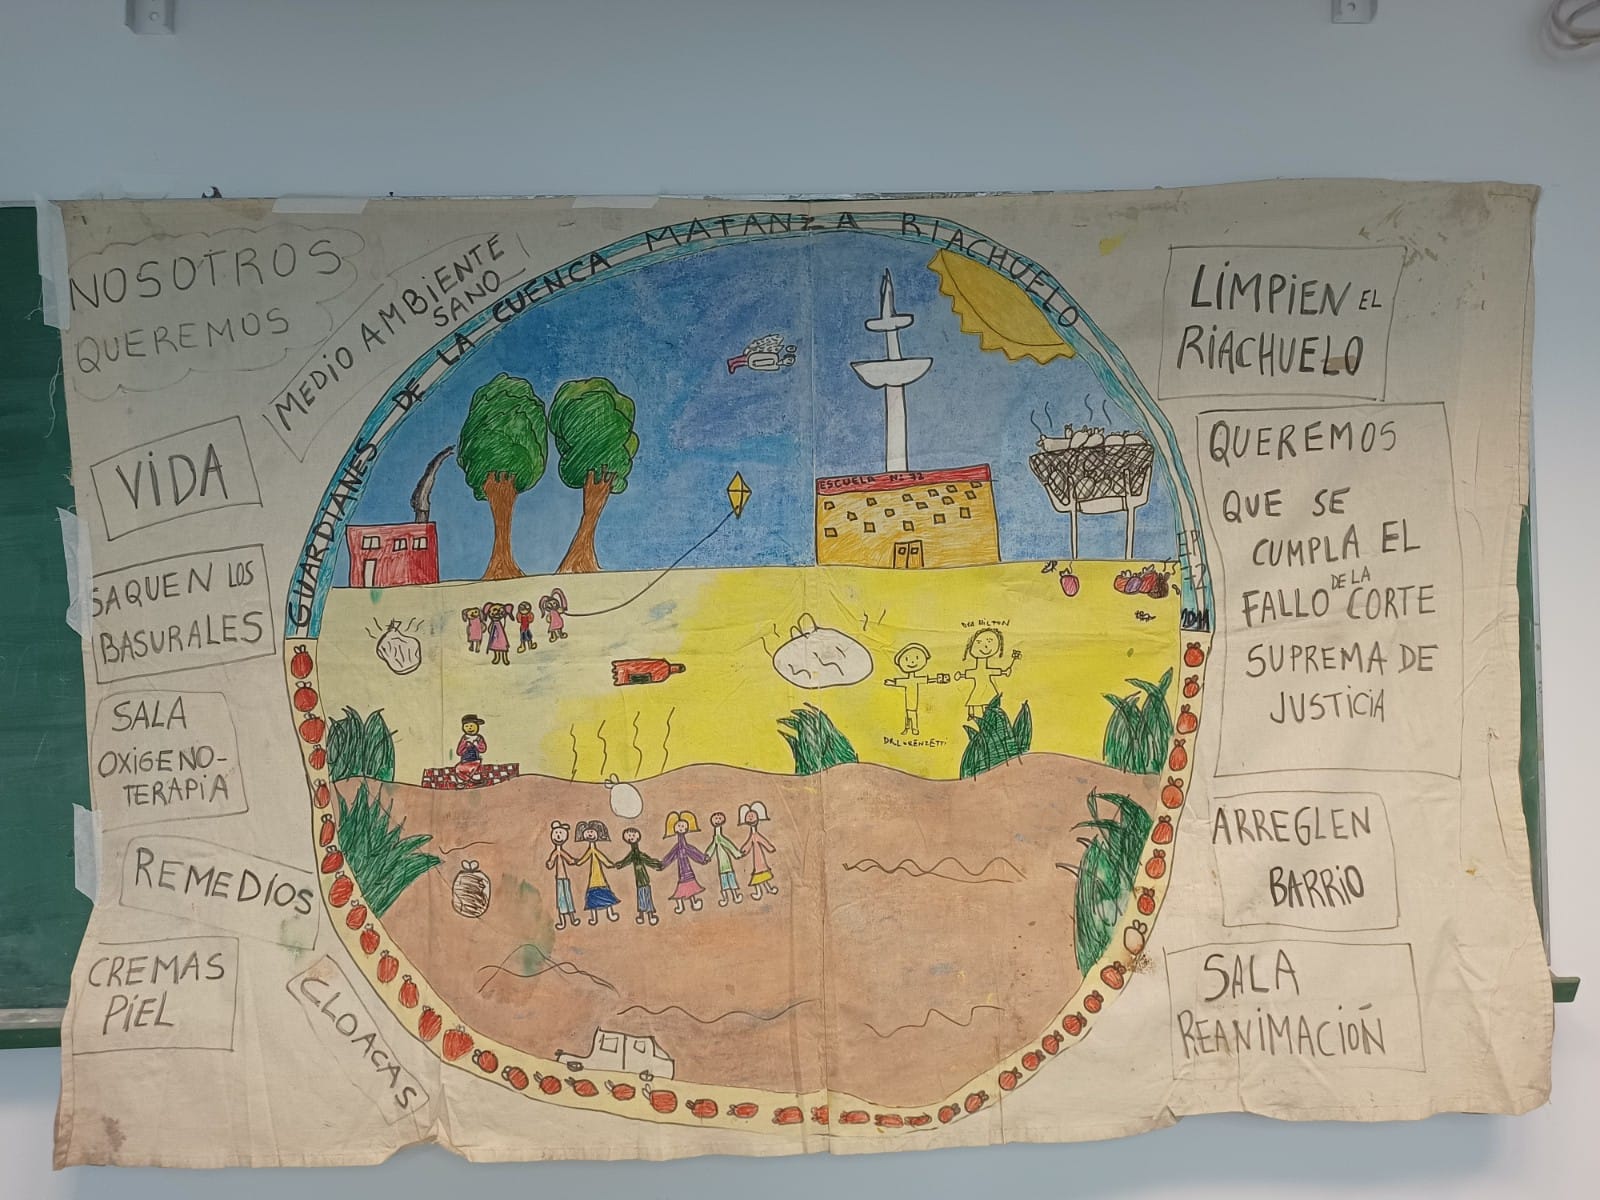 NOSOTROS
QUEREMOS
MEDIO AMBIENTE
SANO
VIDA
SAQUEN LOS
BASURALES
SALA
OXIGENO-
TERAPIA
REMEDIOS
CREMAS
PIEL
CLOACAS
GUARDIANES DE LA CUENCA MATANZA RIACHUELO
EP
72
2011
ESCUELA Nº 72
DRA HILTON
DR. LORENZETTI
LIMPIEN EL
RIACHUELO
QUEREMOS
QUE SE
CUMPLA EL
FALLO DE LA CORTE
SUPREMA DE
JUSTICIA
ARREGLEN
BARRIO
SALA
REANIMACIÓN